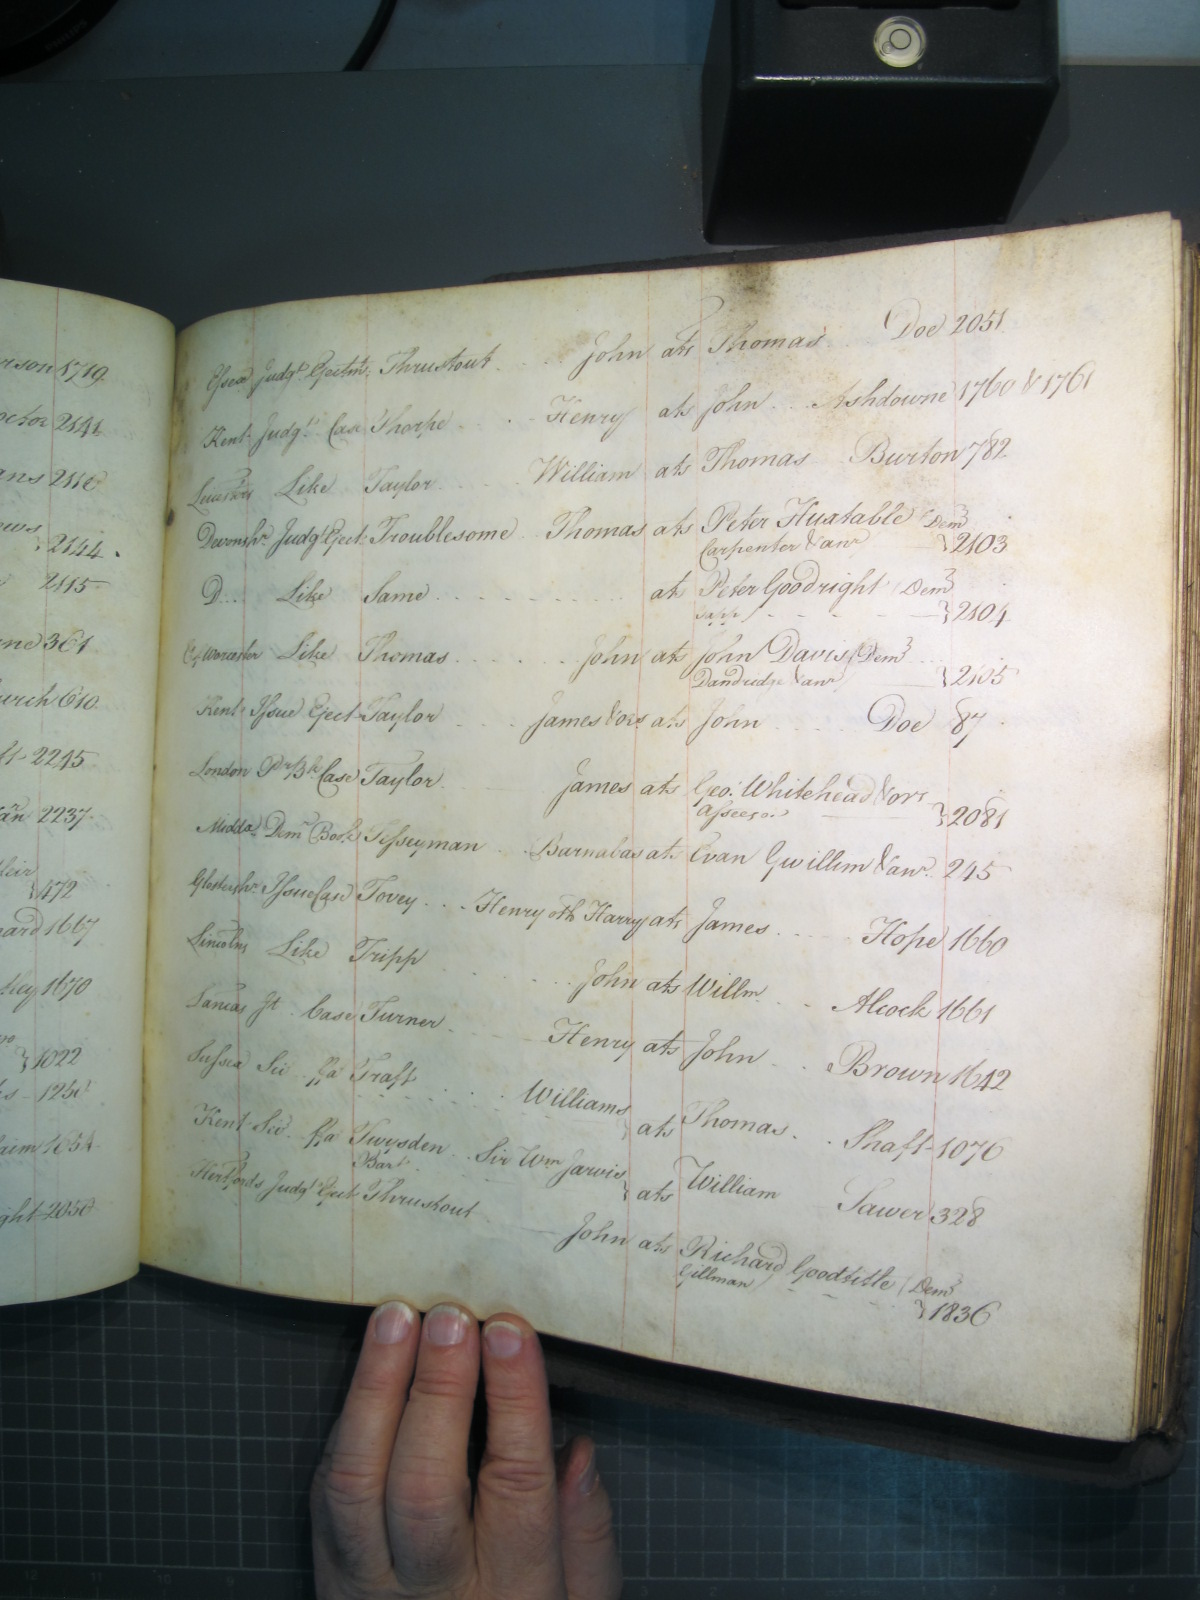 rson 1719
octor 2141
ans 2116
ews
2144
2115
ne 361
urch 610
ft 2245
an 2237
leir
472
ard 1667
they 1670
1022
s - 1251
aim 1654
ght 2050
Essex Judgt. Ejectmt. Thrustout John ats Thomas Doe 2051
Kent Judgt. Case Thorpe Henry ats John Ashdowne 1760 & 1761
Leicesters Like Taylor William ats Thomas Burton 782
Devonshr. Judgt. Eject Troublesome Thomas ats Peter Huxtable (Dem
Carpenter & anr. 2103
D... Like Same ats Peter Goodright (Dem
2104
Cy Worcester Like Thomas John ats John Davis (Dem
Dandridge & anr. 2105
Kent Issue Eject Taylor James & ors ats John Doe 87
London Case Taylor James ats Geo: Whitehead & ors
Assees &c. 2081
Middx. Demr. Book Tesseyman Barnabas ats Evan Gwillim & anr. 245
Glostershr. Issue Case Tovey Henry oth Harry ats James Hope 1660
Lincolns Like Tripp John ats Willm. Alcock 1661
Lancas Jt. Case Turner Henry ats John Brown 1642
Sussex Sci fa Traft Williams ats Thomas Shaft 1076
Kent Sci. fa Twysden Sir Wm Jarvis ats William Sawer 328
Bart.
Hertfords Judgt. Eject Thrustout John ats Richard Goodtitle (Dem
Gillman) 1836